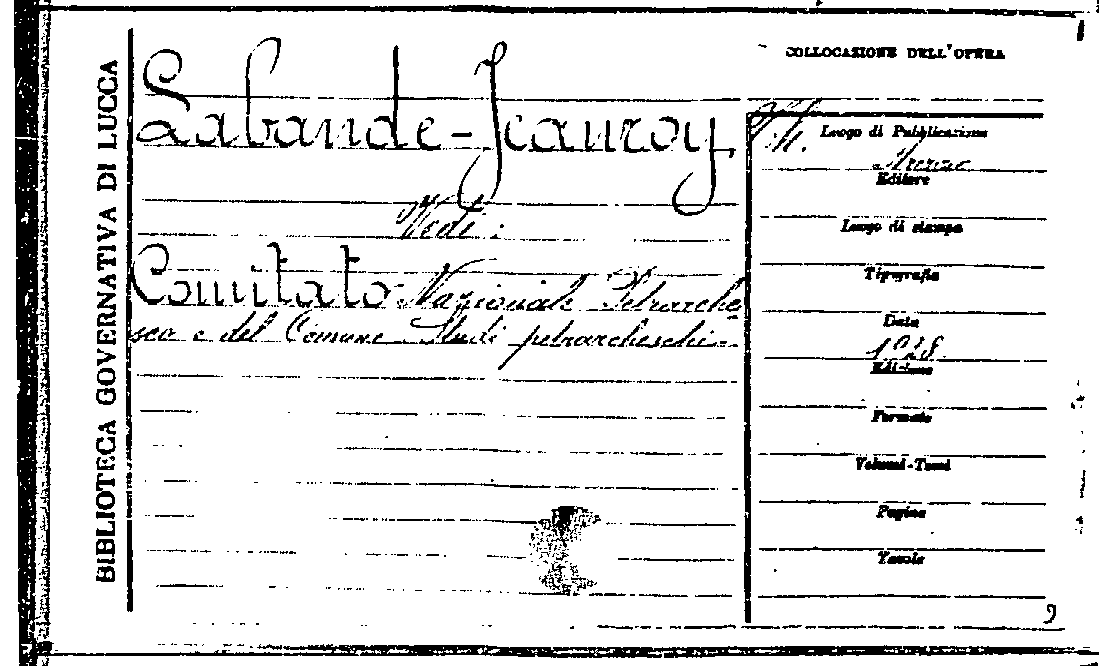 BIBLIOTECA GOVERNATIVA DI LUCCA
Labande-Jeanroy
Vedi:
Comitato Nazionale Petrarche
sco e del Comune. Studi petrarcheschi.
COLLOCAZIONE DELL'OPERA
Luogo di Pubblicazione
Arezzo
Editore
Luogo di stampa
Tipografia
Data
1928
Edizione
Formato
Volumi-Tomi
Pagine
Tavole
9